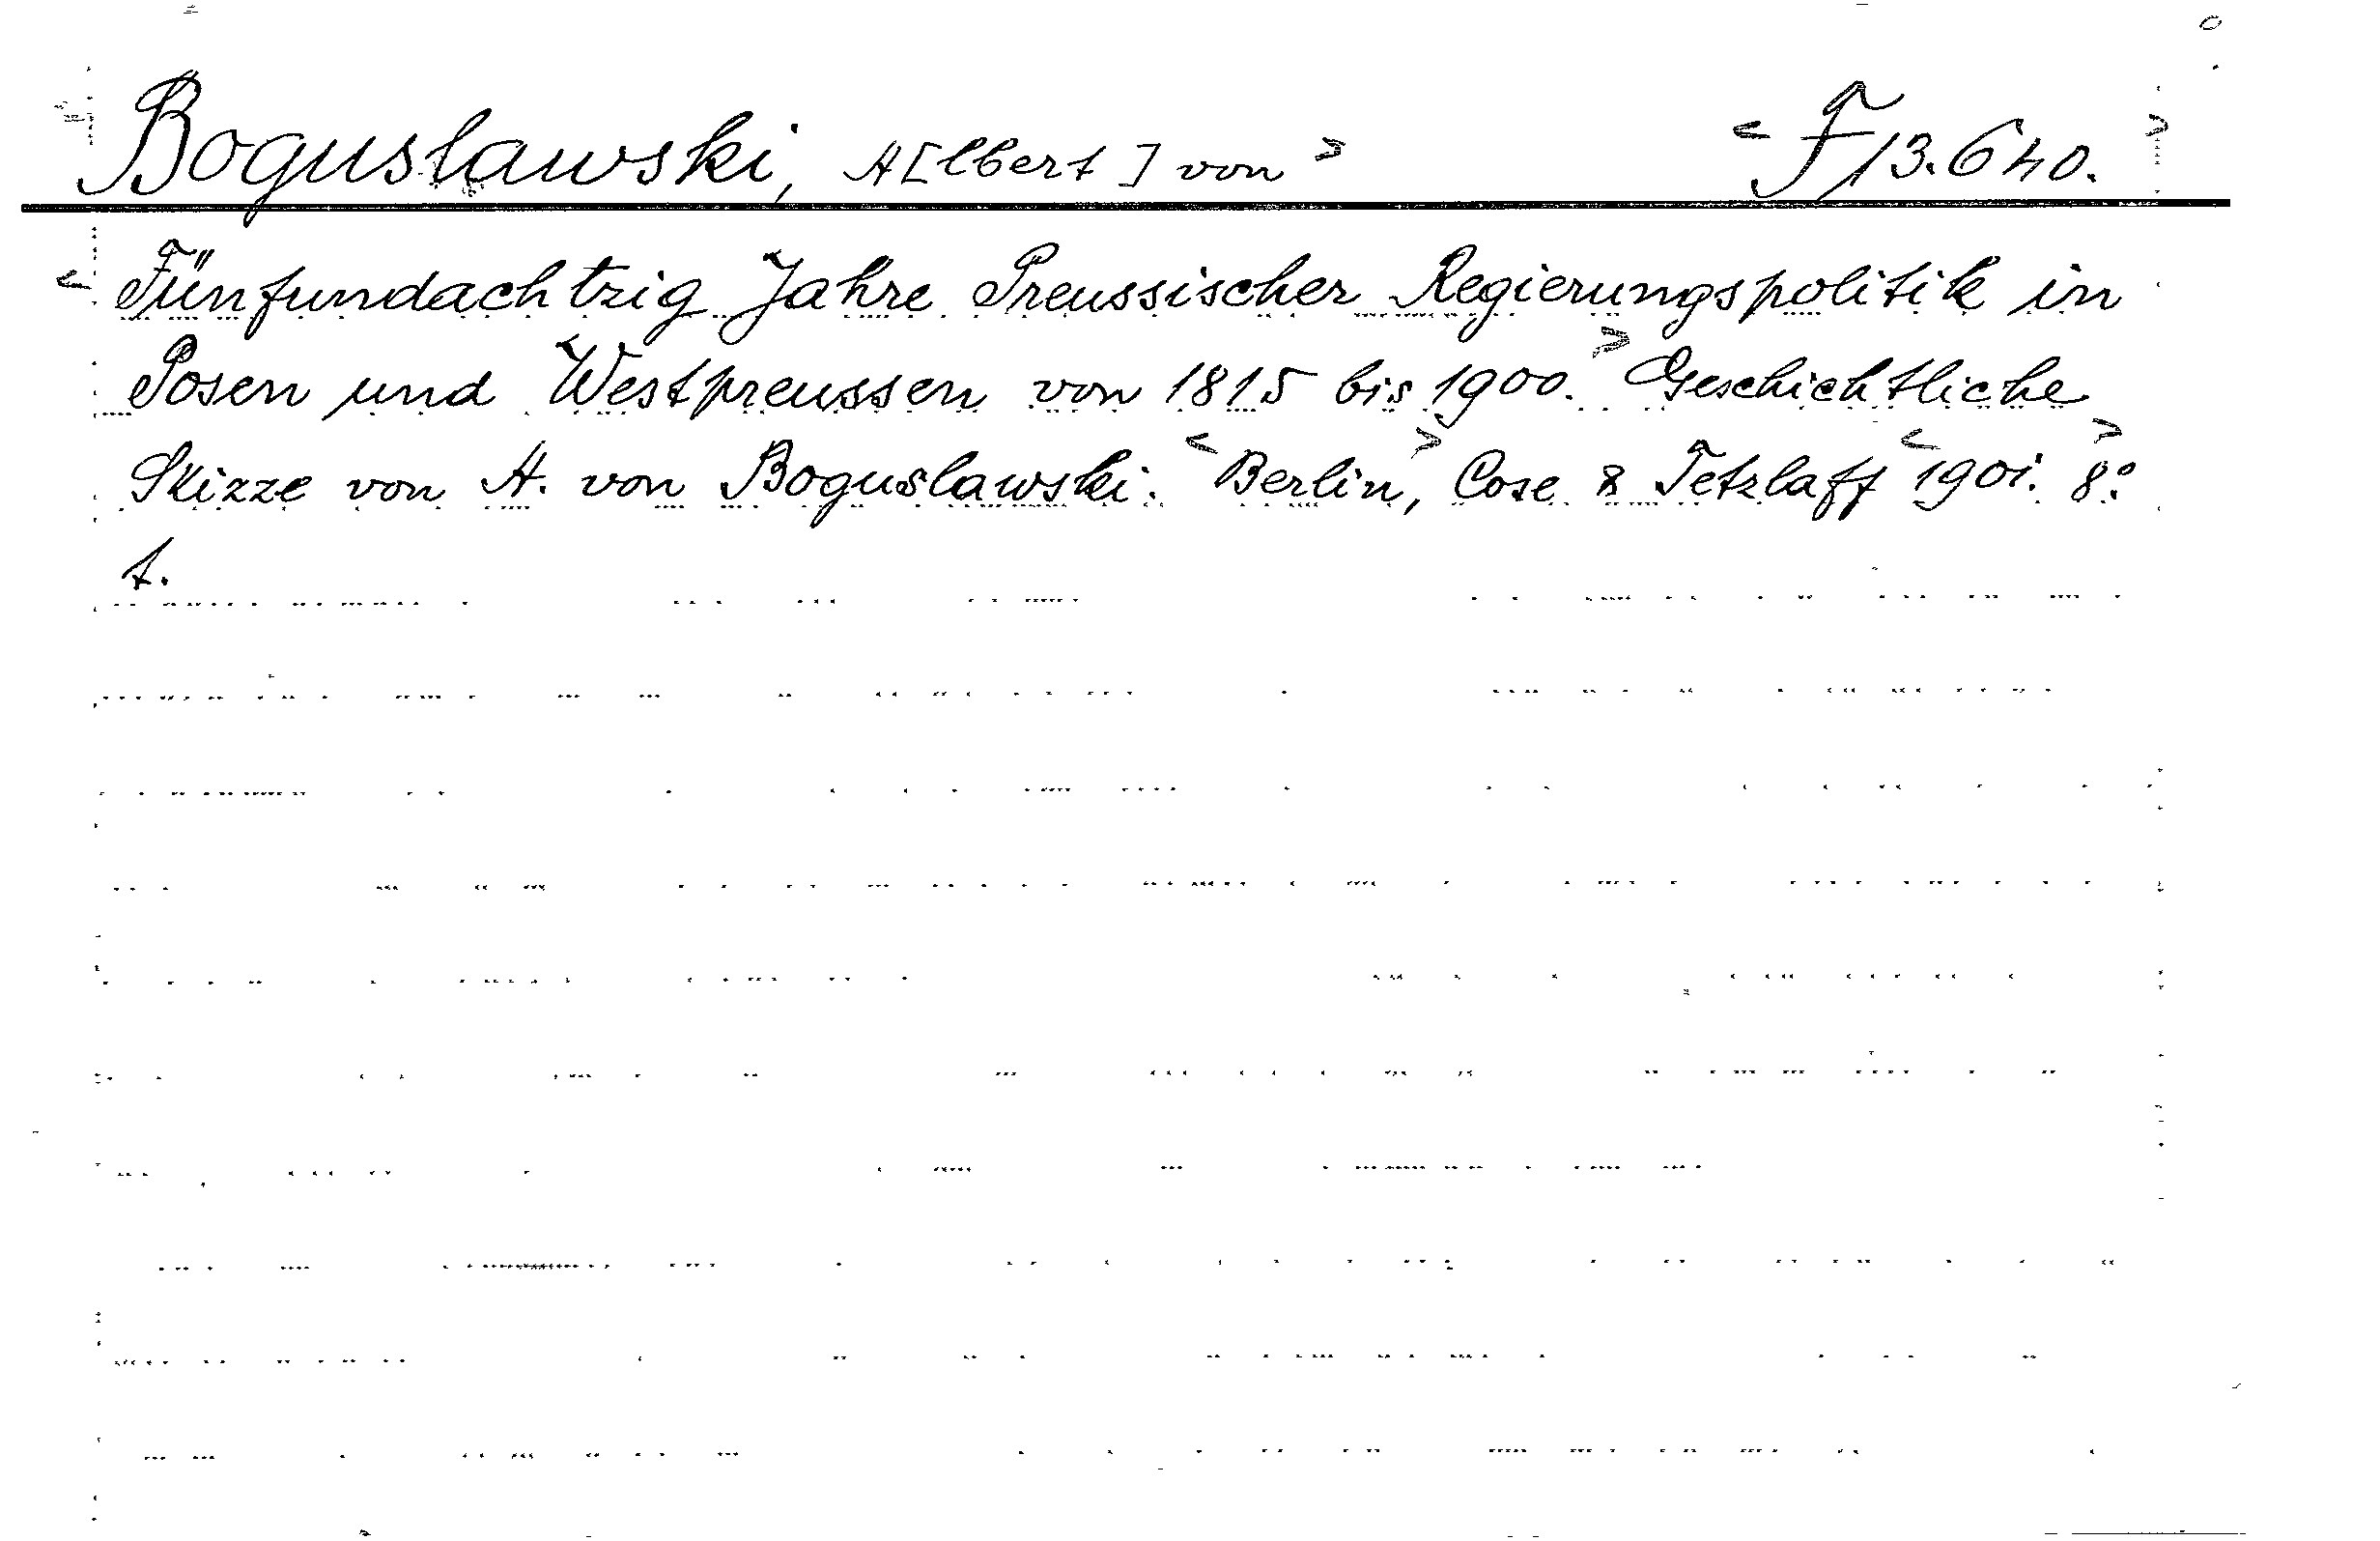 Boguslawski, A[lbert] von> <F13.640.>
<Fünfundachtzig Jahre Preussischer Regierungspolitik in
Posen und Westpreussen von 1815 bis 1900.> Geschichtliche
Skizze von A. von Boguslawski. <Berlin,> Cose & Tetzlaff <1901. 8º>
t.